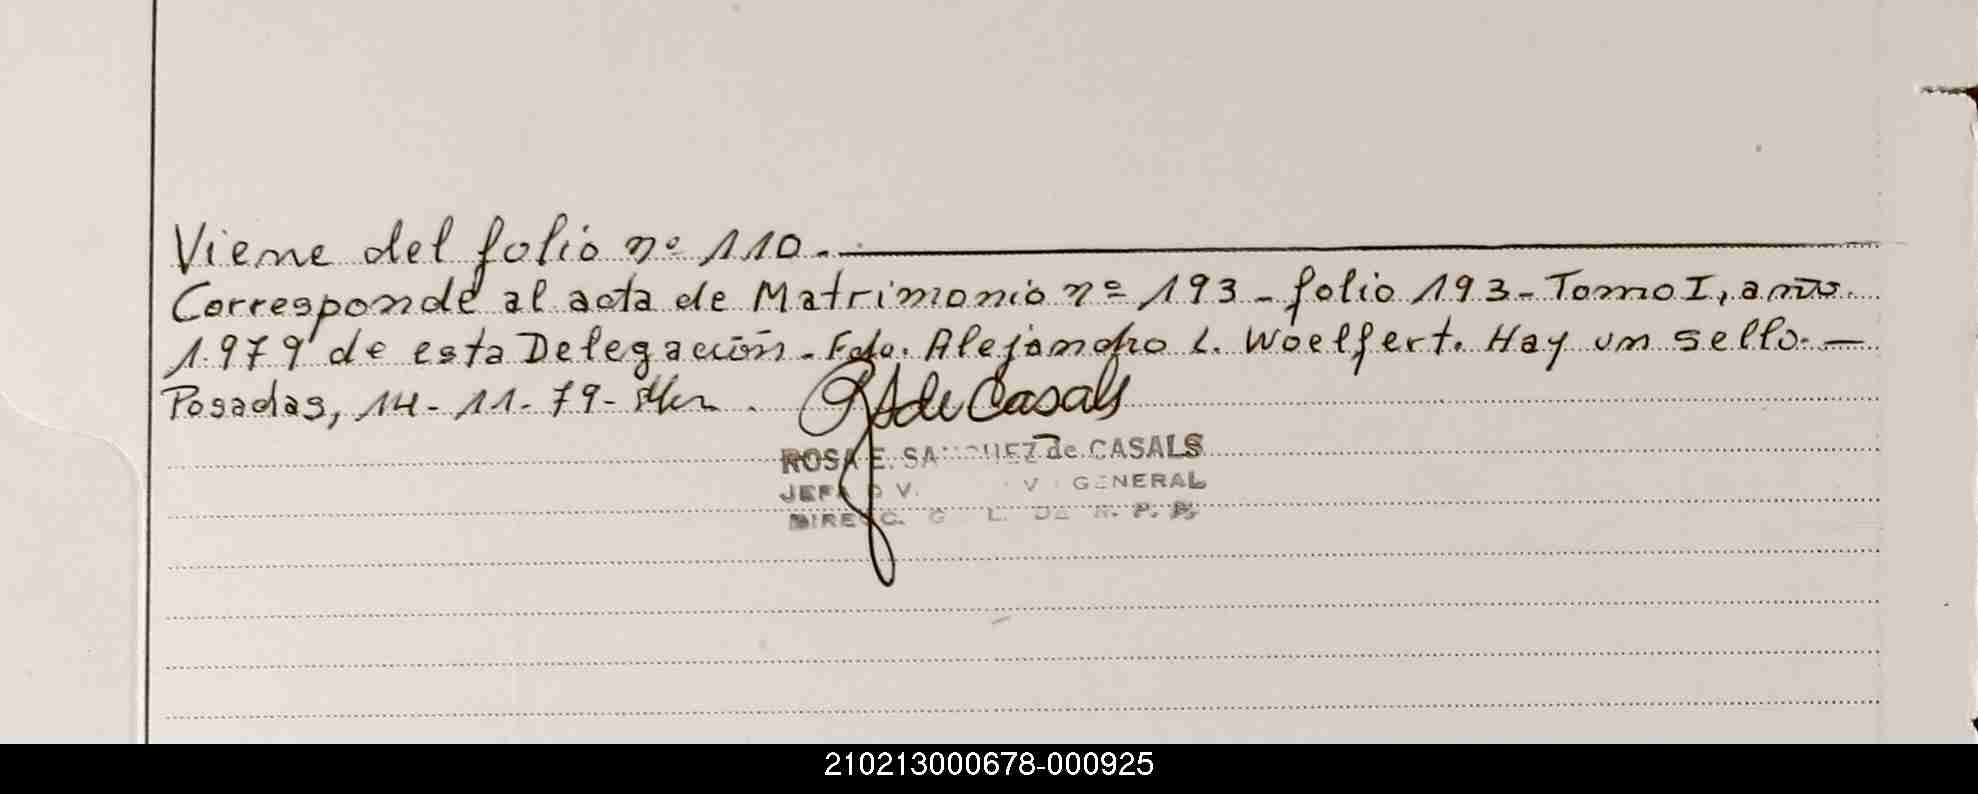 Viene del folio nº 110.
Corresponde al acta de Matrimonio nº 193 - folio 193 - Tomo I, año
1.979 de esta Delegación. Fdo. Alejandro L. Woelfert. Hay un sello. —
Posadas, 14-11-79-
de Casals
ROSA E. SANCHEZ de CASALS
JEFA GENERAL
DIREC. G L. DE R. P. P.
210213000678-000925